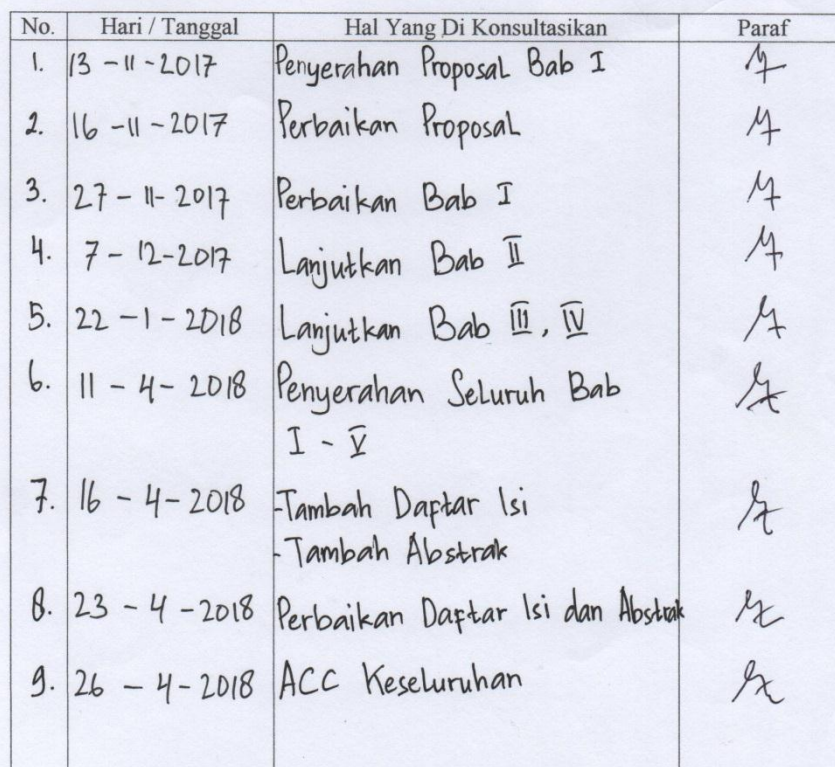 No. Hari / Tanggal Hal Yang Di Konsultasikan Paraf
1. 13 - 11 - 2017 Penyerahan Proposal Bab I
2. 16 - 11 - 2017 Perbaikan Proposal
3. 27 - 11 - 2017 Perbaikan Bab I
4. 7 - 12 - 2017 Lanjutkan Bab II
5. 22 - 1 - 2018 Lanjutkan Bab III, IV
6. 11 - 4 - 2018 Penyerahan Seluruh Bab
I - V
7. 16 - 4 - 2018 - Tambah Daptar Isi
- Tambah Abstrak
8. 23 - 4 - 2018 Perbaikan Daptar Isi dan Abstrak
9. 26 - 4 - 2018 ACC Keseluruhan